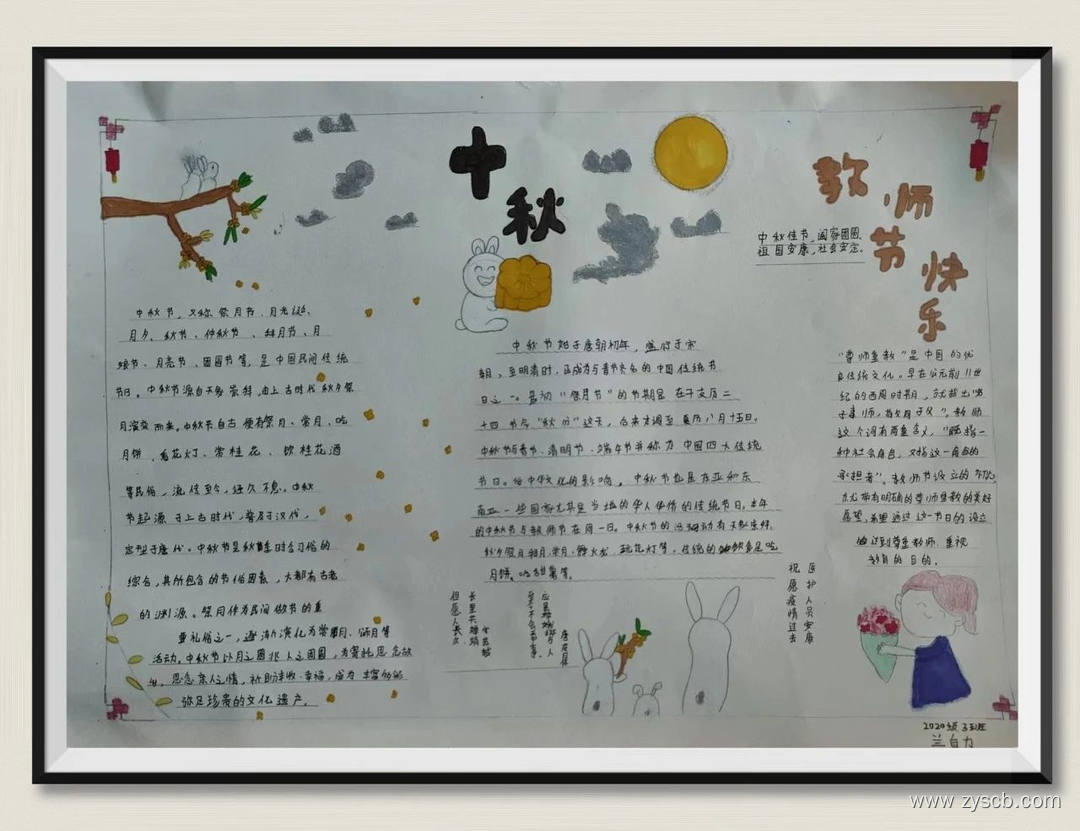 中秋
教师节快乐
中秋佳节，阖家团圆，
祖国安康，社会安定。
中秋节，又称祭月节、月光诞、
月夕、秋节、仲秋节、拜月节、月
娘节、月亮节、团圆节等，是中国民间传统
节日。中秋节源自天象崇拜，由上古时代秋夕祭
月演变而来。中秋节自古便有祭月、赏月、吃
月饼、看花灯、赏桂花、饮桂花酒
等民俗，流传至今，经久不息。中秋
节起源于上古时代，普及于汉代，
定型于唐代。中秋节是秋季时令习俗的
综合，其所包含的节俗因素，大都有古老
的渊源。祭月作为民间做节的重
要礼俗之一，逐渐演化为赏月、颂月等
活动。中秋节以月之圆兆人之团圆，为寄托思念故
乡，思念亲人之情，祈盼丰收、幸福，成为丰富多彩的
弥足珍贵的文化遗产。
中秋节始于唐朝初年，盛行于宋
朝，至明清时，已成为与春节齐名的中国传统节
日之一。最初"祭月节"的节期是在干支历二
十四节气"秋分"这天，后来才调至夏历八月十五日。
中秋节与春节、清明节、端午节并称为中国四大传统
节日。受中华文化的影响，中秋节也是东亚和东
南亚一些国家尤其是当地的华人华侨的传统节日。
的中秋节与教师节在同一日。中秋节的
月饼、吃甜薯等。
但愿人长久
"尊师重教"是中国的优
良传统文化。早在公元前11世
纪的西周时期，就提出"弟
子事师，敬同于父"。教师
这个词有两重含义，
种社会角色，又指这一角色的
承担者"。教师节设立的
在尤带有明确的尊师重教的美好
愿望，希望通过这一节日的设立
达到尊重教师、重视
教育的目的。
医护人员安康
祝愿疫情过去
2020级3班
兰自力
www.zyscb.com